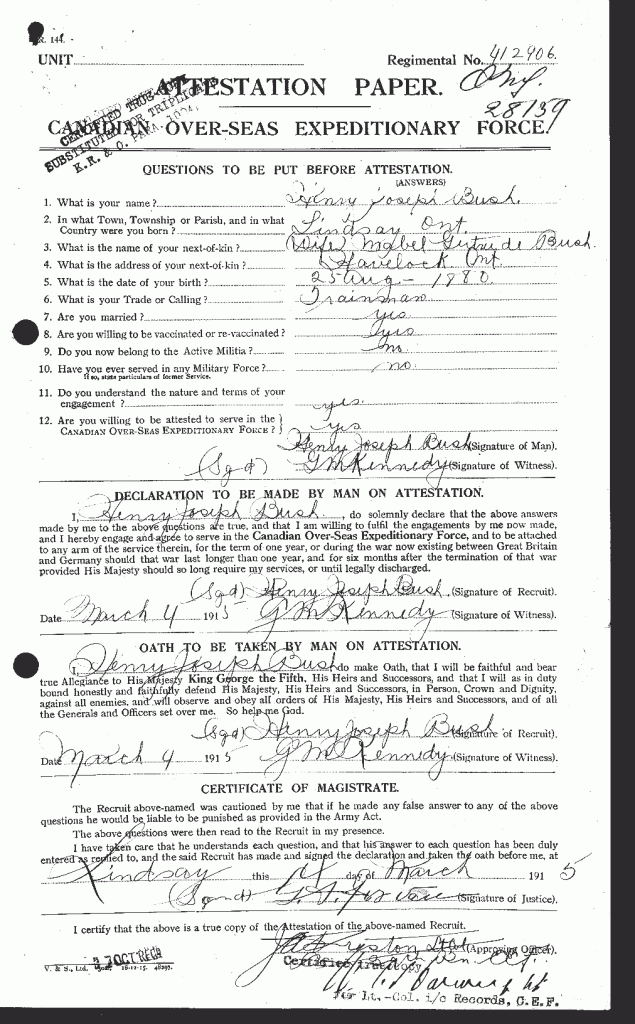 R. 144.
UNIT
Regimental No. 412906.
ATTESTATION PAPER.
Orig.
28139
CERTIFIED TRUE COPY
SUBSTITUTED FOR TRIPLICATE
K. R. & O. PARA.
CANADIAN OVER-SEAS EXPEDITIONARY FORCE.
QUESTIONS TO BE PUT BEFORE ATTESTATION.
(ANSWERS)
1. What is your name? Henry Joseph Bush.
2. In what Town, Township or Parish, and in what
Country were you born? Lindsay Ont.
3. What is the name of your next-of-kin? (Wife) Mabel Gertrude Bush.
4. What is the address of your next-of-kin? Havelock Ont.
5. What is the date of your birth? 25 Aug - 1880.
6. What is your Trade or Calling? Trainsman
7. Are you married? yes
8. Are you willing to be vaccinated or re-vaccinated? yes
9. Do you now belong to the Active Militia? no
10. Have you ever served in any Military Force? no.
If so, state particulars of former Service.
11. Do you understand the nature and terms of your
engagement? yes.
12. Are you willing to be attested to serve in the
CANADIAN OVER-SEAS EXPEDITIONARY FORCE? } yes
Henry Joseph Bush (Signature of Man).
(Sgd) G M Kennedy (Signature of Witness).
DECLARATION TO BE MADE BY MAN ON ATTESTATION.
I, Henry Joseph Bush, do solemnly declare that the above answers
made by me to the above questions are true, and that I am willing to fulfil the engagements by me now made,
and I hereby engage and agree to serve in the Canadian Over-Seas Expeditionary Force, and to be attached
to any arm of the service therein, for the term of one year, or during the war now existing between Great Britain
and Germany should that war last longer than one year, and for six months after the termination of that war
provided His Majesty should so long require my services, or until legally discharged.
(Sgd) Henry Joseph Bush (Signature of Recruit).
Date March 4 1915 G M Kennedy (Signature of Witness).
OATH TO BE TAKEN BY MAN ON ATTESTATION.
I, Henry Joseph Bush do make Oath, that I will be faithful and bear
true Allegiance to His Majesty King George the Fifth, His Heirs and Successors, and that I will as in duty
bound honestly and faithfully defend His Majesty, His Heirs and Successors, in Person, Crown and Dignity,
against all enemies, and will observe and obey all orders of His Majesty, His Heirs and Successors, and of all
the Generals and Officers set over me. So help me God.
(Sgd) Henry Joseph Bush (Signature of Recruit).
Date March 4 1915 G M Kennedy (Signature of Witness).
CERTIFICATE OF MAGISTRATE.
The Recruit above-named was cautioned by me that if he made any false answer to any of the above
questions he would be liable to be punished as provided in the Army Act.
The above questions were then read to the Recruit in my presence.
I have taken care that he understands each question, and that his answer to each question has been duly
entered as replied to, and the said Recruit has made and signed the declaration and taken the oath before me, at
Lindsay this 4 day of March 1915
(Signature of Justice).
I certify that the above is a true copy of the Attestation of the above-named Recruit.
(Approving Officer).
OCT REC'D
V. & S., Ltd. 18-12-15. 48297.
Certified true copy
for Lt.-Col. i/c Records, C.E.F.